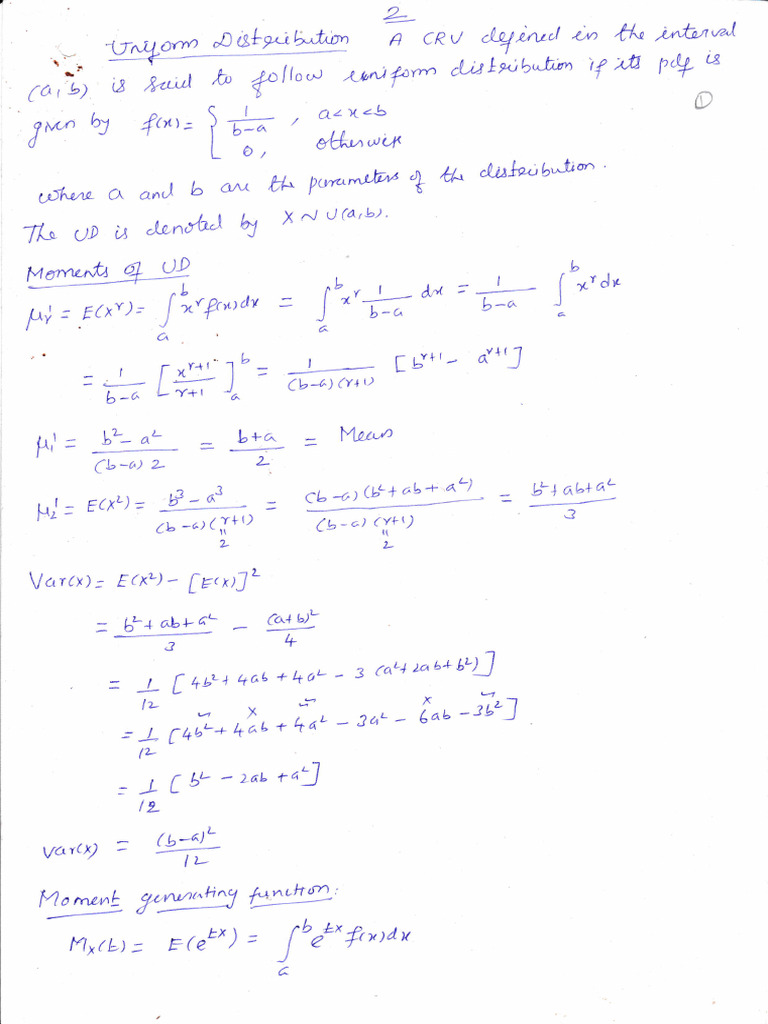 2
Uniform Distribution A CRV defined in the interval
(a,b) is said to follow uniform distribution if its pdf is
given by f(x) = { 1/(b-a) , a<x<b
0, otherwise
①
where a and b are the parameters of the distribution.
The UD is denoted by X ~ U(a,b).
Moments of UD
μr' = E(X^r) = ∫_a^b x^r f(x)dx = ∫_a^b x^r 1/(b-a) dx = 1/(b-a) ∫_a^b x^r dx
= 1/(b-a) [x^(r+1)/(r+1)]_a^b = 1/((b-a)(r+1)) [b^(r+1) - a^(r+1)]
μ1' = (b² - a²)/((b-a) 2) = (b+a)/2 = Mean
μ2' = E(X²) = (b³ - a³)/((b-a)(r+1)) = (b-a)(b²+ab+a²)/((b-a)(r+1)) = (b²+ab+a²)/3
" "
2 2
Var(x) = E(X²) - [E(X)]²
= (b²+ab+a²)/3 - (a+b)²/4
= 1/12 [4b²+4ab+4a² - 3(a²+2ab+b²)]
= 1/12 [4b²+4ab+4a² - 3a² - 6ab - 3b²]
= 1/12 [b² - 2ab + a²]
Var(x) = (b-a)²/12
Moment generating function:
Mx(t) = E(e^(tx)) = ∫_a^b e^(tx) f(x)dx